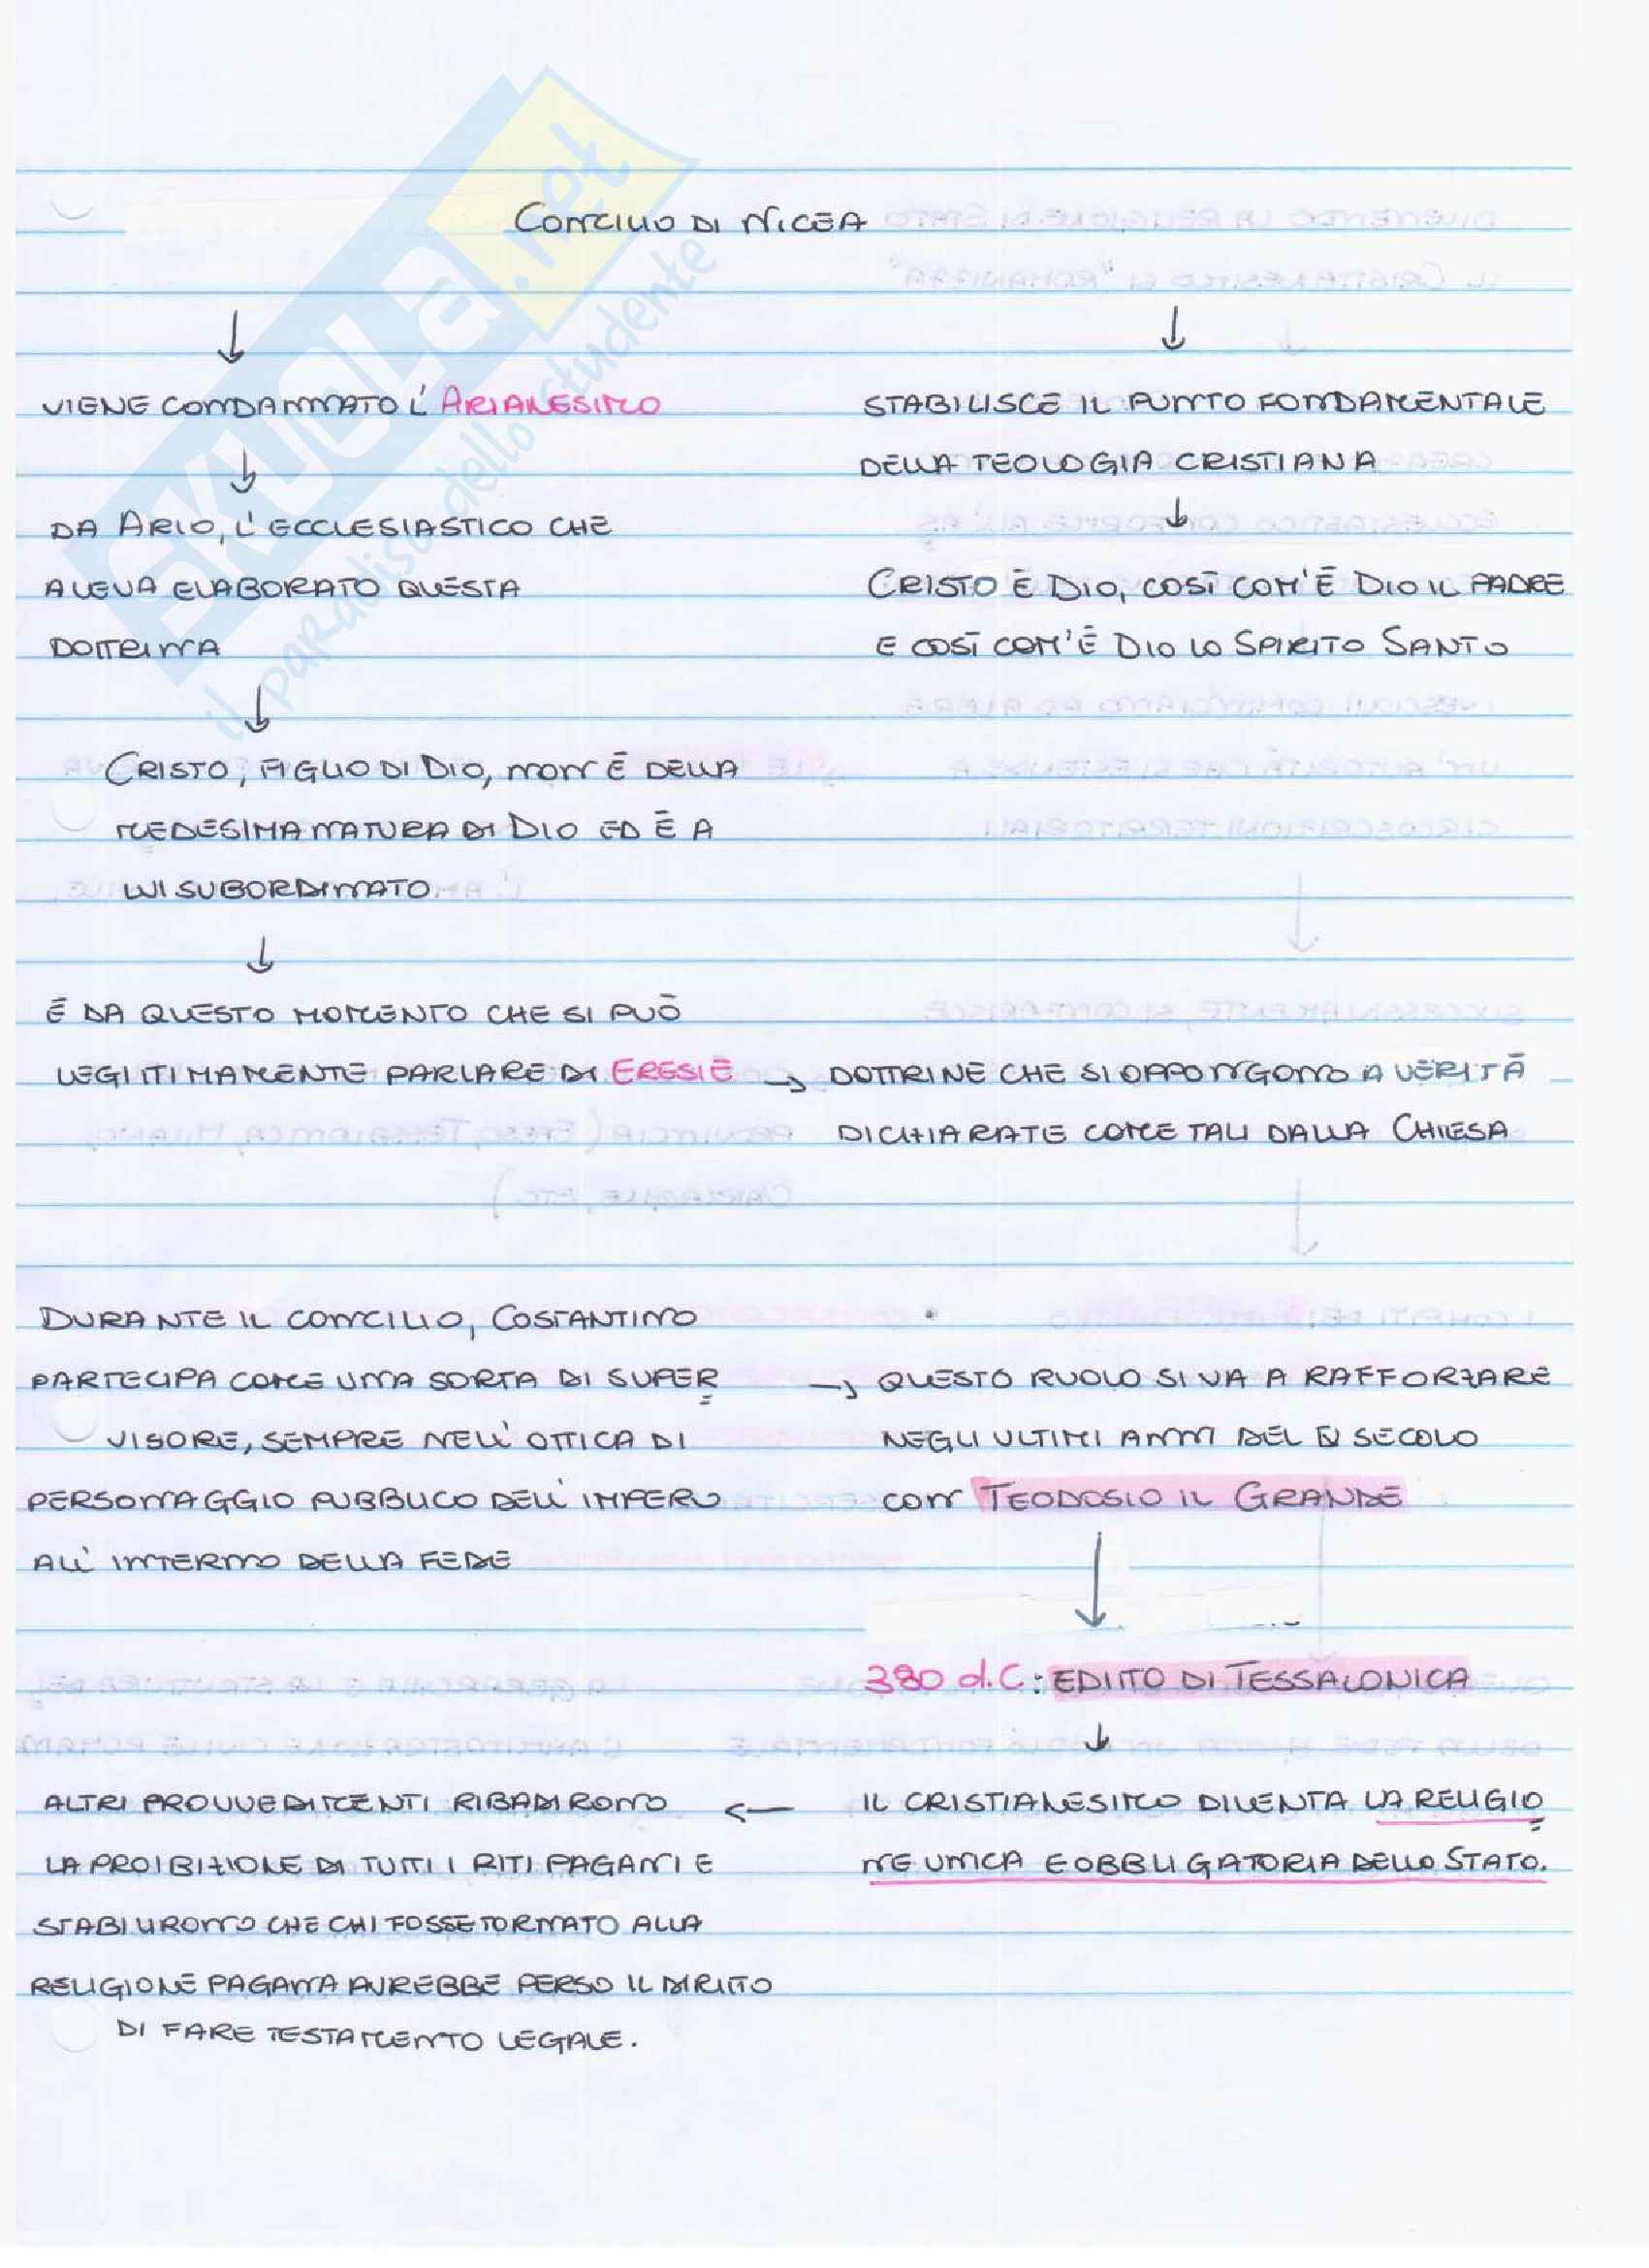 Concilio di Nicea
viene condannato l'Arianesimo
da Ario, l'ecclesiastico che
aveva elaborato questa
dottrina
Cristo, figlio di Dio, non è della
medesima natura di Dio ed è a
lui subordinato
È da questo momento che si può
legittimamente parlare di Eresie
stabilisce il punto fondamentale
della teologia cristiana
Cristo è Dio, così com'è Dio il Padre
e così com'è Dio lo Spirito Santo
→ dottrine che si oppongono a verità
dichiarate come tali dalla Chiesa
Durante il concilio, Costantino
partecipa come una sorta di super
visore, sempre nell'ottica di
personaggio pubblico dell'impero
all'interno della fede
→ questo ruolo si va a rafforzare
negli ultimi anni del IV secolo
con Teodosio il Grande
380 d.C: EDITTO DI TESSALONICA
il cristianesimo diventa la religio
ne unica e obbligatoria dello Stato.
altri provvedimenti ribadirono ←
la proibizione di tutti i riti pagani e
stabilirono che chi fosse tornato alla
religione pagana avrebbe perso il diritto
di fare testamento legale.
SKUOLA.net
il paradiso dello studente